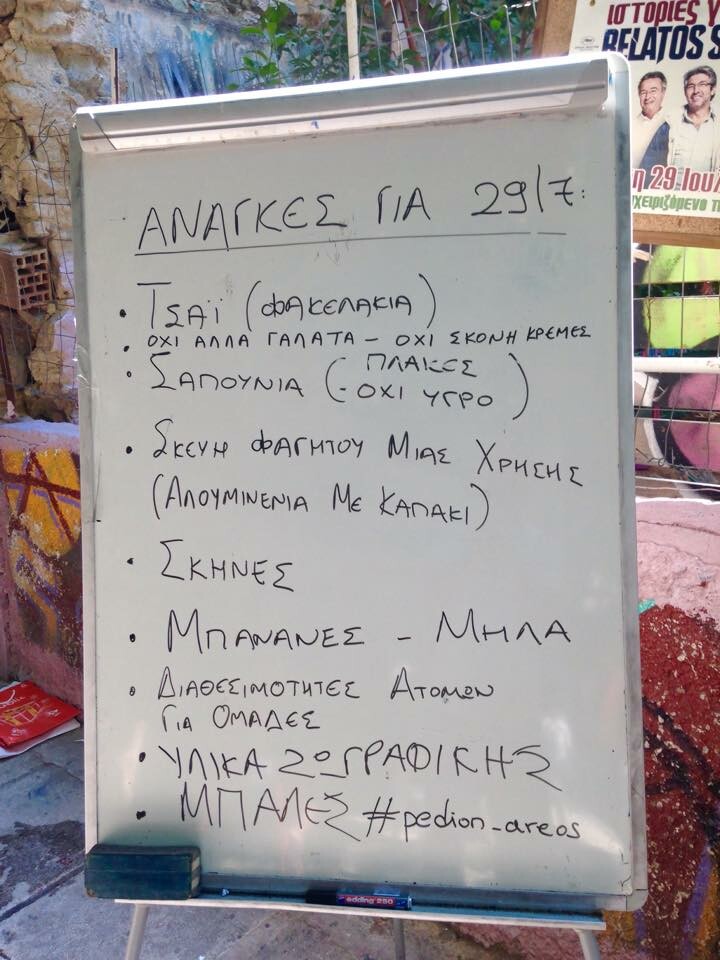 ιστορίες γ
RELATOS S
η 29 Ιουλ
χειριζόμενο τ
ΑΝΑΓΚΕΣ ΓΙΑ 29/7:
• ΤΣΑΪ (ΦΑΚΕΛΑΚΙΑ)
• ΟΧΙ ΑΛΛΑ ΓΑΛΑΤΑ – ΟΧΙ ΣΚΟΝΗ ΚΡΕΜΕΣ
• ΣΑΠΟΥΝΙΑ (- ΠΛΑΚΕΣ
- ΟΧΙ ΥΓΡΟ)
• ΣΚΕΥΗ ΦΑΓΗΤΟΥ ΜΙΑΣ ΧΡΗΣΗΣ
(ΑΛΟΥΜΙΝΕΝΙΑ ΜΕ ΚΑΠΑΚΙ)
• ΣΚΗΝΕΣ
• ΜΠΑΝΑΝΕΣ – ΜΗΛΑ
• ΔΙΑΘΕΣΙΜΟΤΗΤΕΣ ΑΤΟΜΩΝ
ΓΙΑ ΟΜΑΔΕΣ
• ΥΛΙΚΑ ΖΩΓΡΑΦΙΚΗΣ
• ΜΠΑΛΕΣ #pedion_areos
edding 250